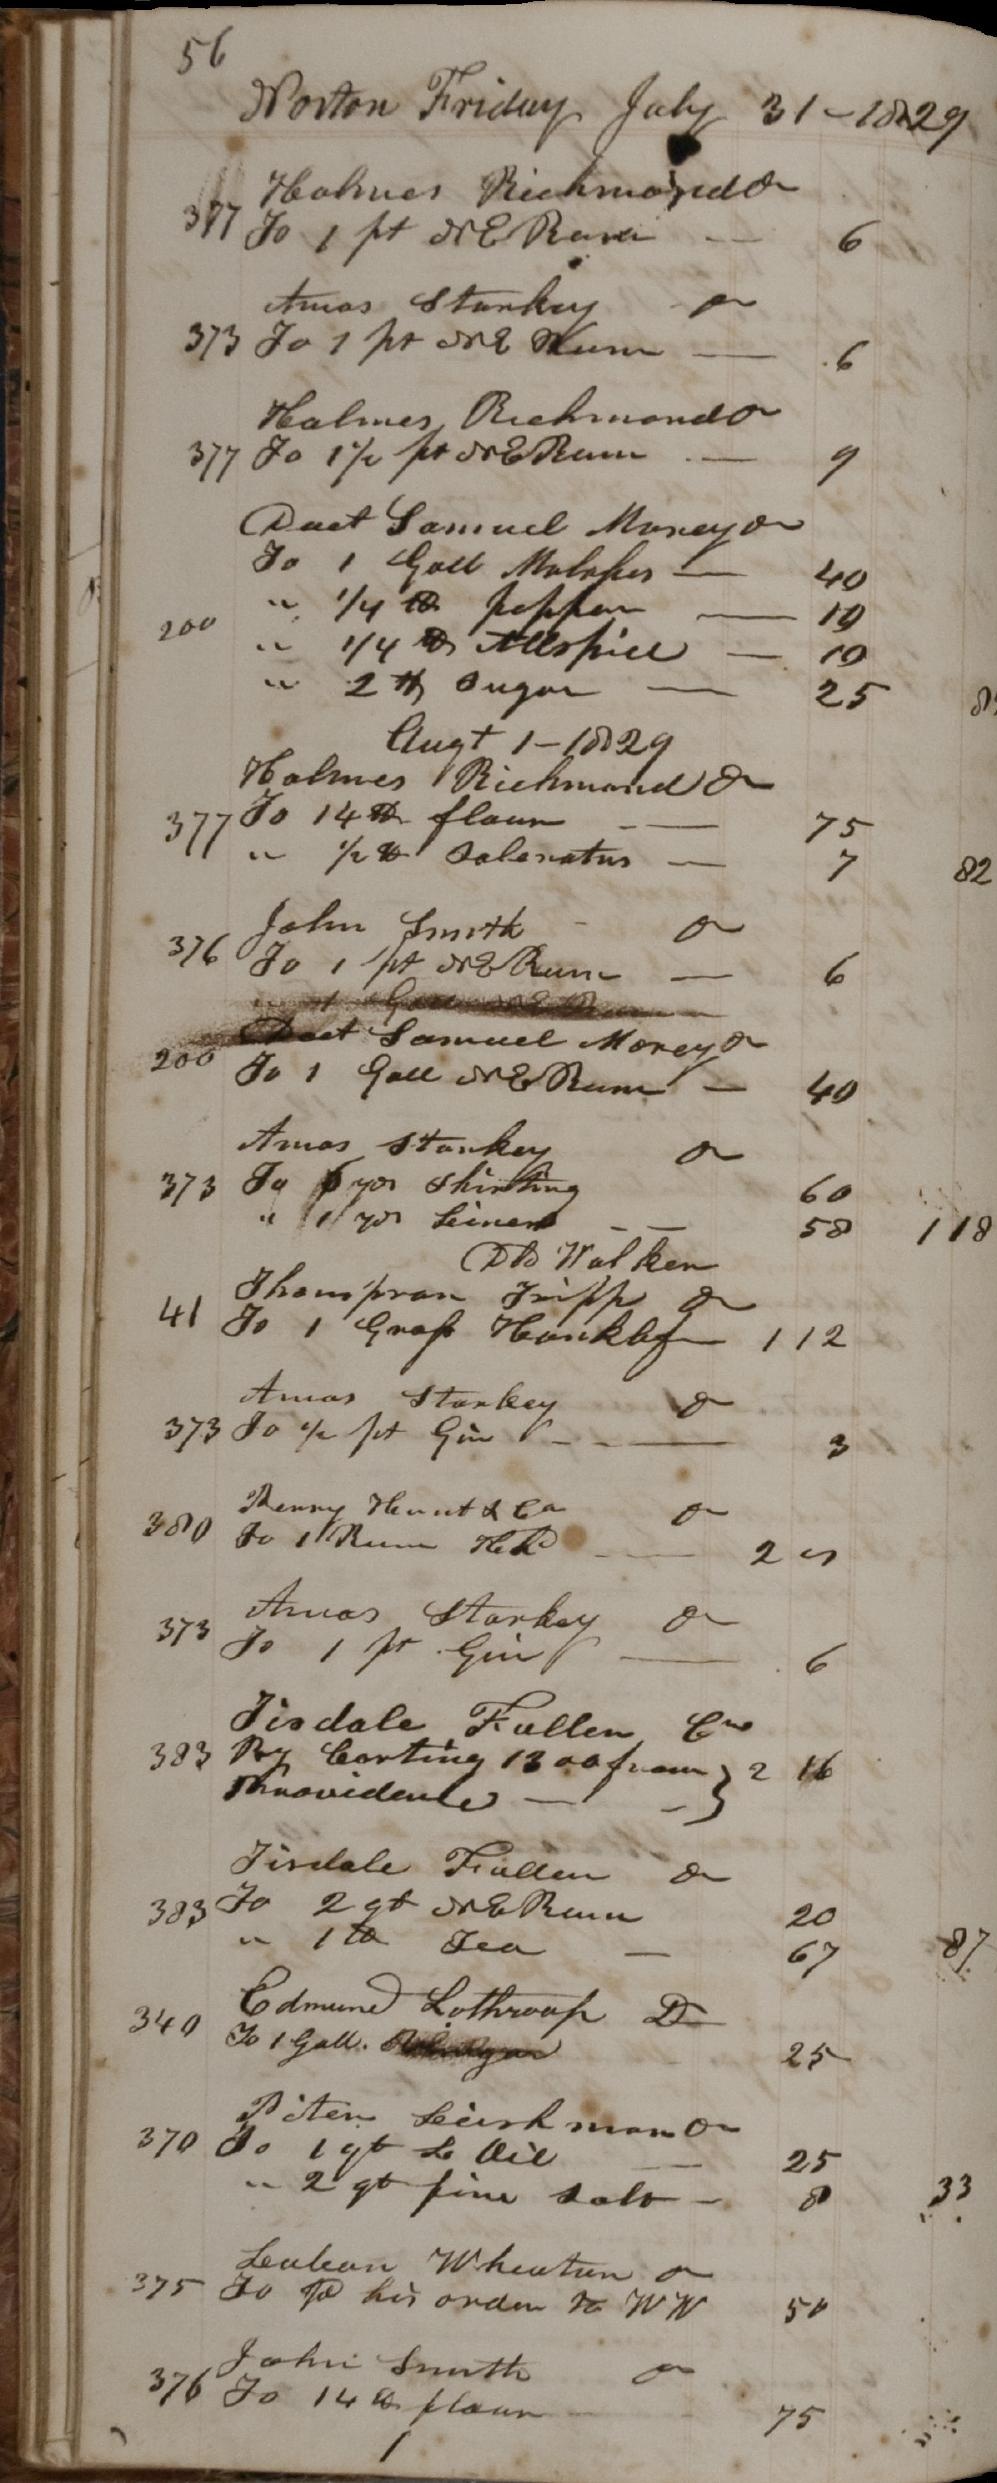 56
Norton Friday July 31 - 1829
Holmes Richmond Dr
377 To 1 pt N E Rum — 6
Amos Starkey Dr
373 To 1 pt N E Rum — 6
Holmes Richmond Dr
377 To 1 1/2 pt N E Rum — 9
Doct Samuel Morey Dr
To 1 Gall Molasses — 40
" 1/4 lb peppar — 10
200 " 1/4 lb Allspice — 10
" 2 lb Sugar — 25 85
Augt 1 - 1829
Holmes Richmond Dr
377 To 14 lb flour — 75
" 1/2 lb Saleratus — 7 82
John Smith Dr
376 To 1 pt N E Rum — 6
" 1 Gall N E Rum
Doct Samuel Morey Dr
200 To 1 Gall N E Rum — 40
Amos Starkey Dr
373 To 6 yds Shirting 60
" 1 yds Linen — 58 118
DD Walker
Thompson Tripp Dr
41 To 1 Gross 1 12
Amos Starkey Dr
373 To 1/2 pt Gin — 3
Perry Hunt & Co Dr
380 To 1 Rum Hhd — 2
Amos Starkey Dr
373 To 1 pt Gin — 6
Tisdale Fuller Cr
383 By Carting 1300 from } 2 16
Providence —
Tisdale Fuller Dr
383 To 2 qt N E Rum 20
" 1 lb Tea — 67 87
Edmund Lothroop Dr
340 To 1 Gall. 25
Piter Leishman Dr
370 To 1 qt L Oil — 25
" 2 qt fine salt — 8 33
Laban Wheaton Dr
375 To pd his order to W W 50
John Smith Dr
376 To 14 lb flour 75